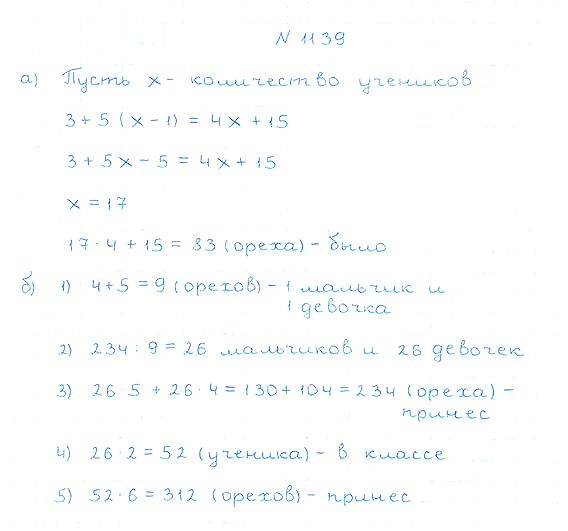 N 1139
а) Пусть х - количество учеников
3 + 5 (х - 1) = 4х + 15
3 + 5х - 5 = 4х + 15
х = 17
17 · 4 + 15 = 83 (ореха) - было
б) 1) 4 + 5 = 9 (орехов) - 1 мальчик и
1 девочка
2) 234 : 9 = 26 мальчиков и 26 девочек
3) 26 · 5 + 26 · 4 = 130 + 104 = 234 (ореха) -
принес
4) 26 · 2 = 52 (ученика) - в классе
5) 52 · 6 = 312 (орехов) - принес